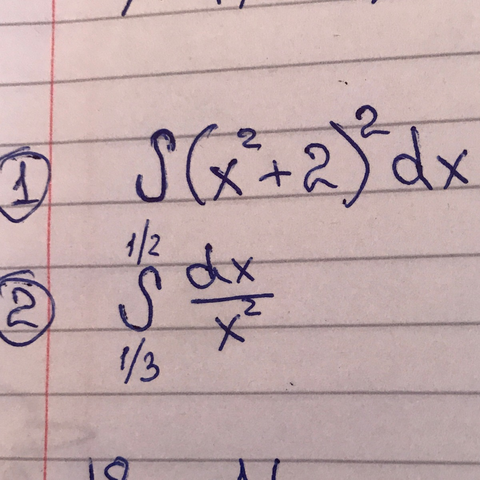 ① ∫(x²+2)² dx
② ∫_{1/3}^{1/2} dx/x²